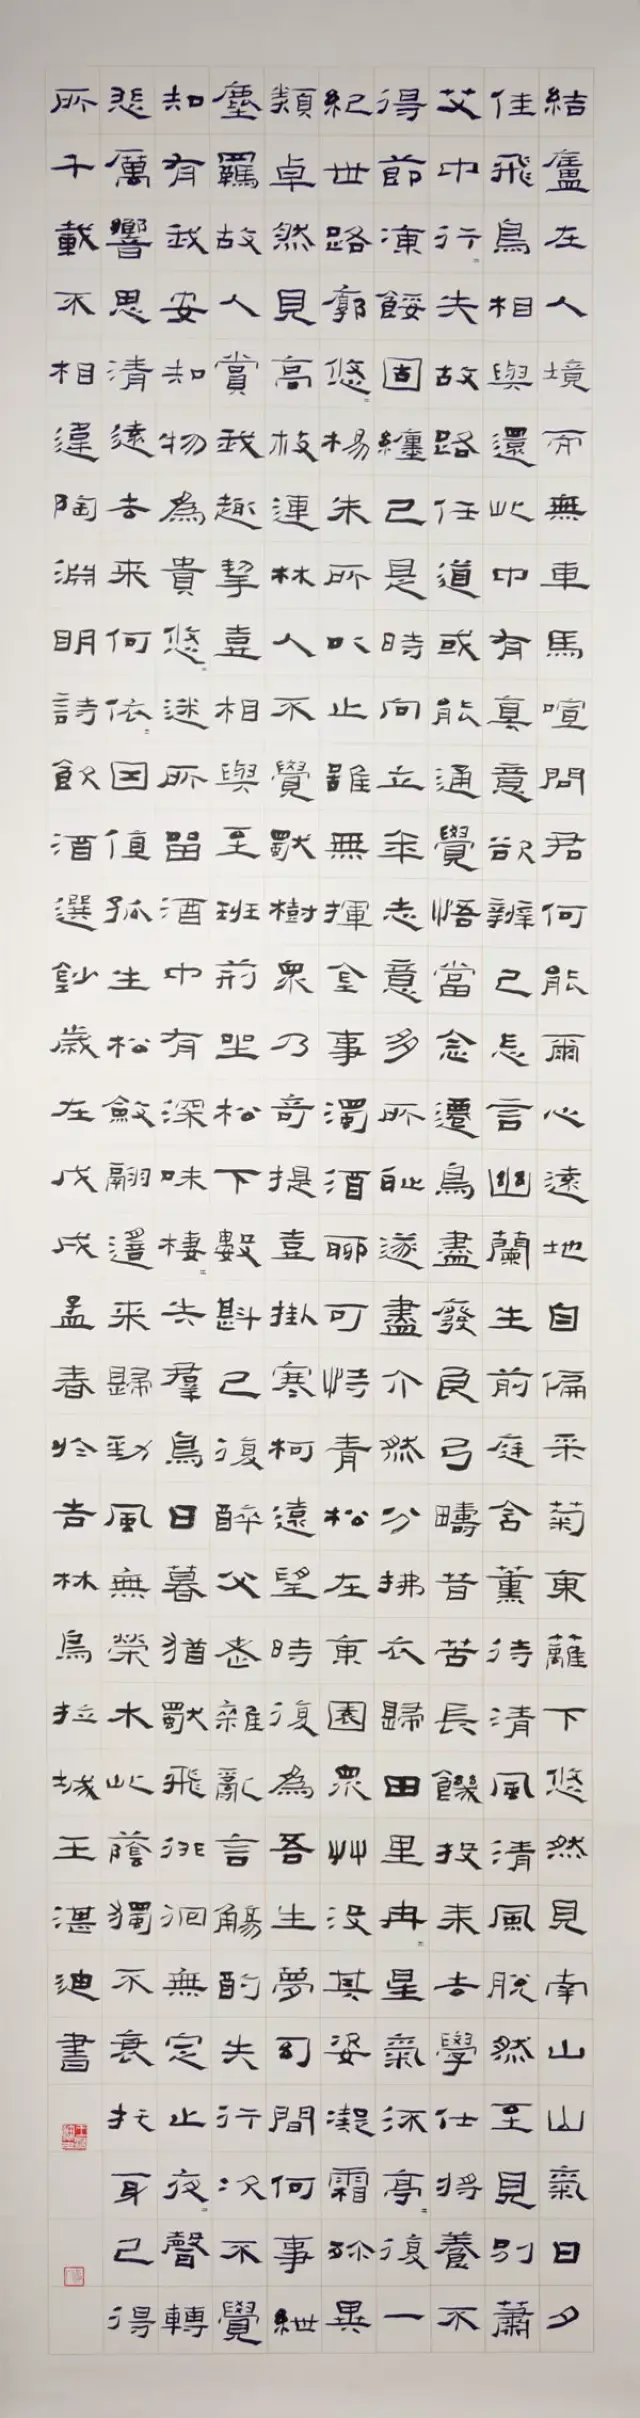 結廬在人境而無車馬喧問君何能爾心遠地自偏采菊東蘺下悠然見南山山氣日夕
佳飛鳥相與還此中有真意欲辨已忘言幽蘭生前庭含薰待清風清風脫然至見別蕭
艾中行〻失故路任道或能通覺悟當念還鳥盡廢良弓疇昔苦長饑投耒去學仕將養不
得節凍餒固纏己是時向立年志意多所恥遂盡介然分拂衣歸田里冉〻星氣流亭〻復一
紀世路廓悠〻楊朱所以止雖無揮金事濁酒聊可恃青松在東園眾艸沒其姿凝霜殄異
類卓然見高枝連林人不覺獨樹眾乃奇提壺掛寒柯遠望時復為吾生夢幻間何事紲
塵羈故人賞我趣挈壺相與至班荊坐松下數斟已復醉父老雜亂言觴酌失行次不覺
知有我安知物為貴悠〻迷所留酒中有深味棲〻失羣鳥日暮猶獨飛徘徊無定止夜〻聲轉
悲厲響思清遠去来何依〻因值孤生松斂翮遙来歸勁風無榮木此蔭獨不衰託身已得
所千載不相違陶淵明詩飲酒選鈔歲在戊戌孟春於吉林烏拉城王湛迪書